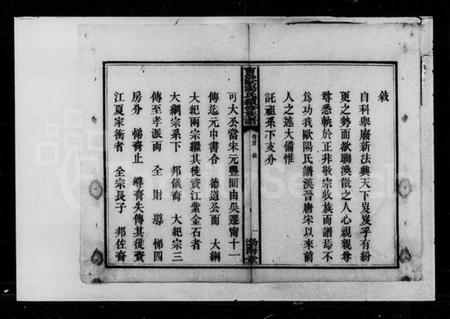 敘
自科舉廢新法興天下岌岌乎有紛
更之勢而欲聯渙散之人心親親尊
尊悉軌於正非敬宗收族而譜焉不
為功我歐陽氏譜漢晉唐宋以來前
人之述大備惟
託祖系下支分
卷首 敘 一
可大公當宋元豐間由吳遷甯十一
傳迄元中書令 德道公而 大綱
大紀兩宗繼其後貲江紫金石者
大綱宗系下 邦儀裔 大紀宗三
傳至孝派而 全 財 導 悌四
房分 悌裔止 導裔失傳其徙賚
江夏家衝者 全宗長子 邦佐裔